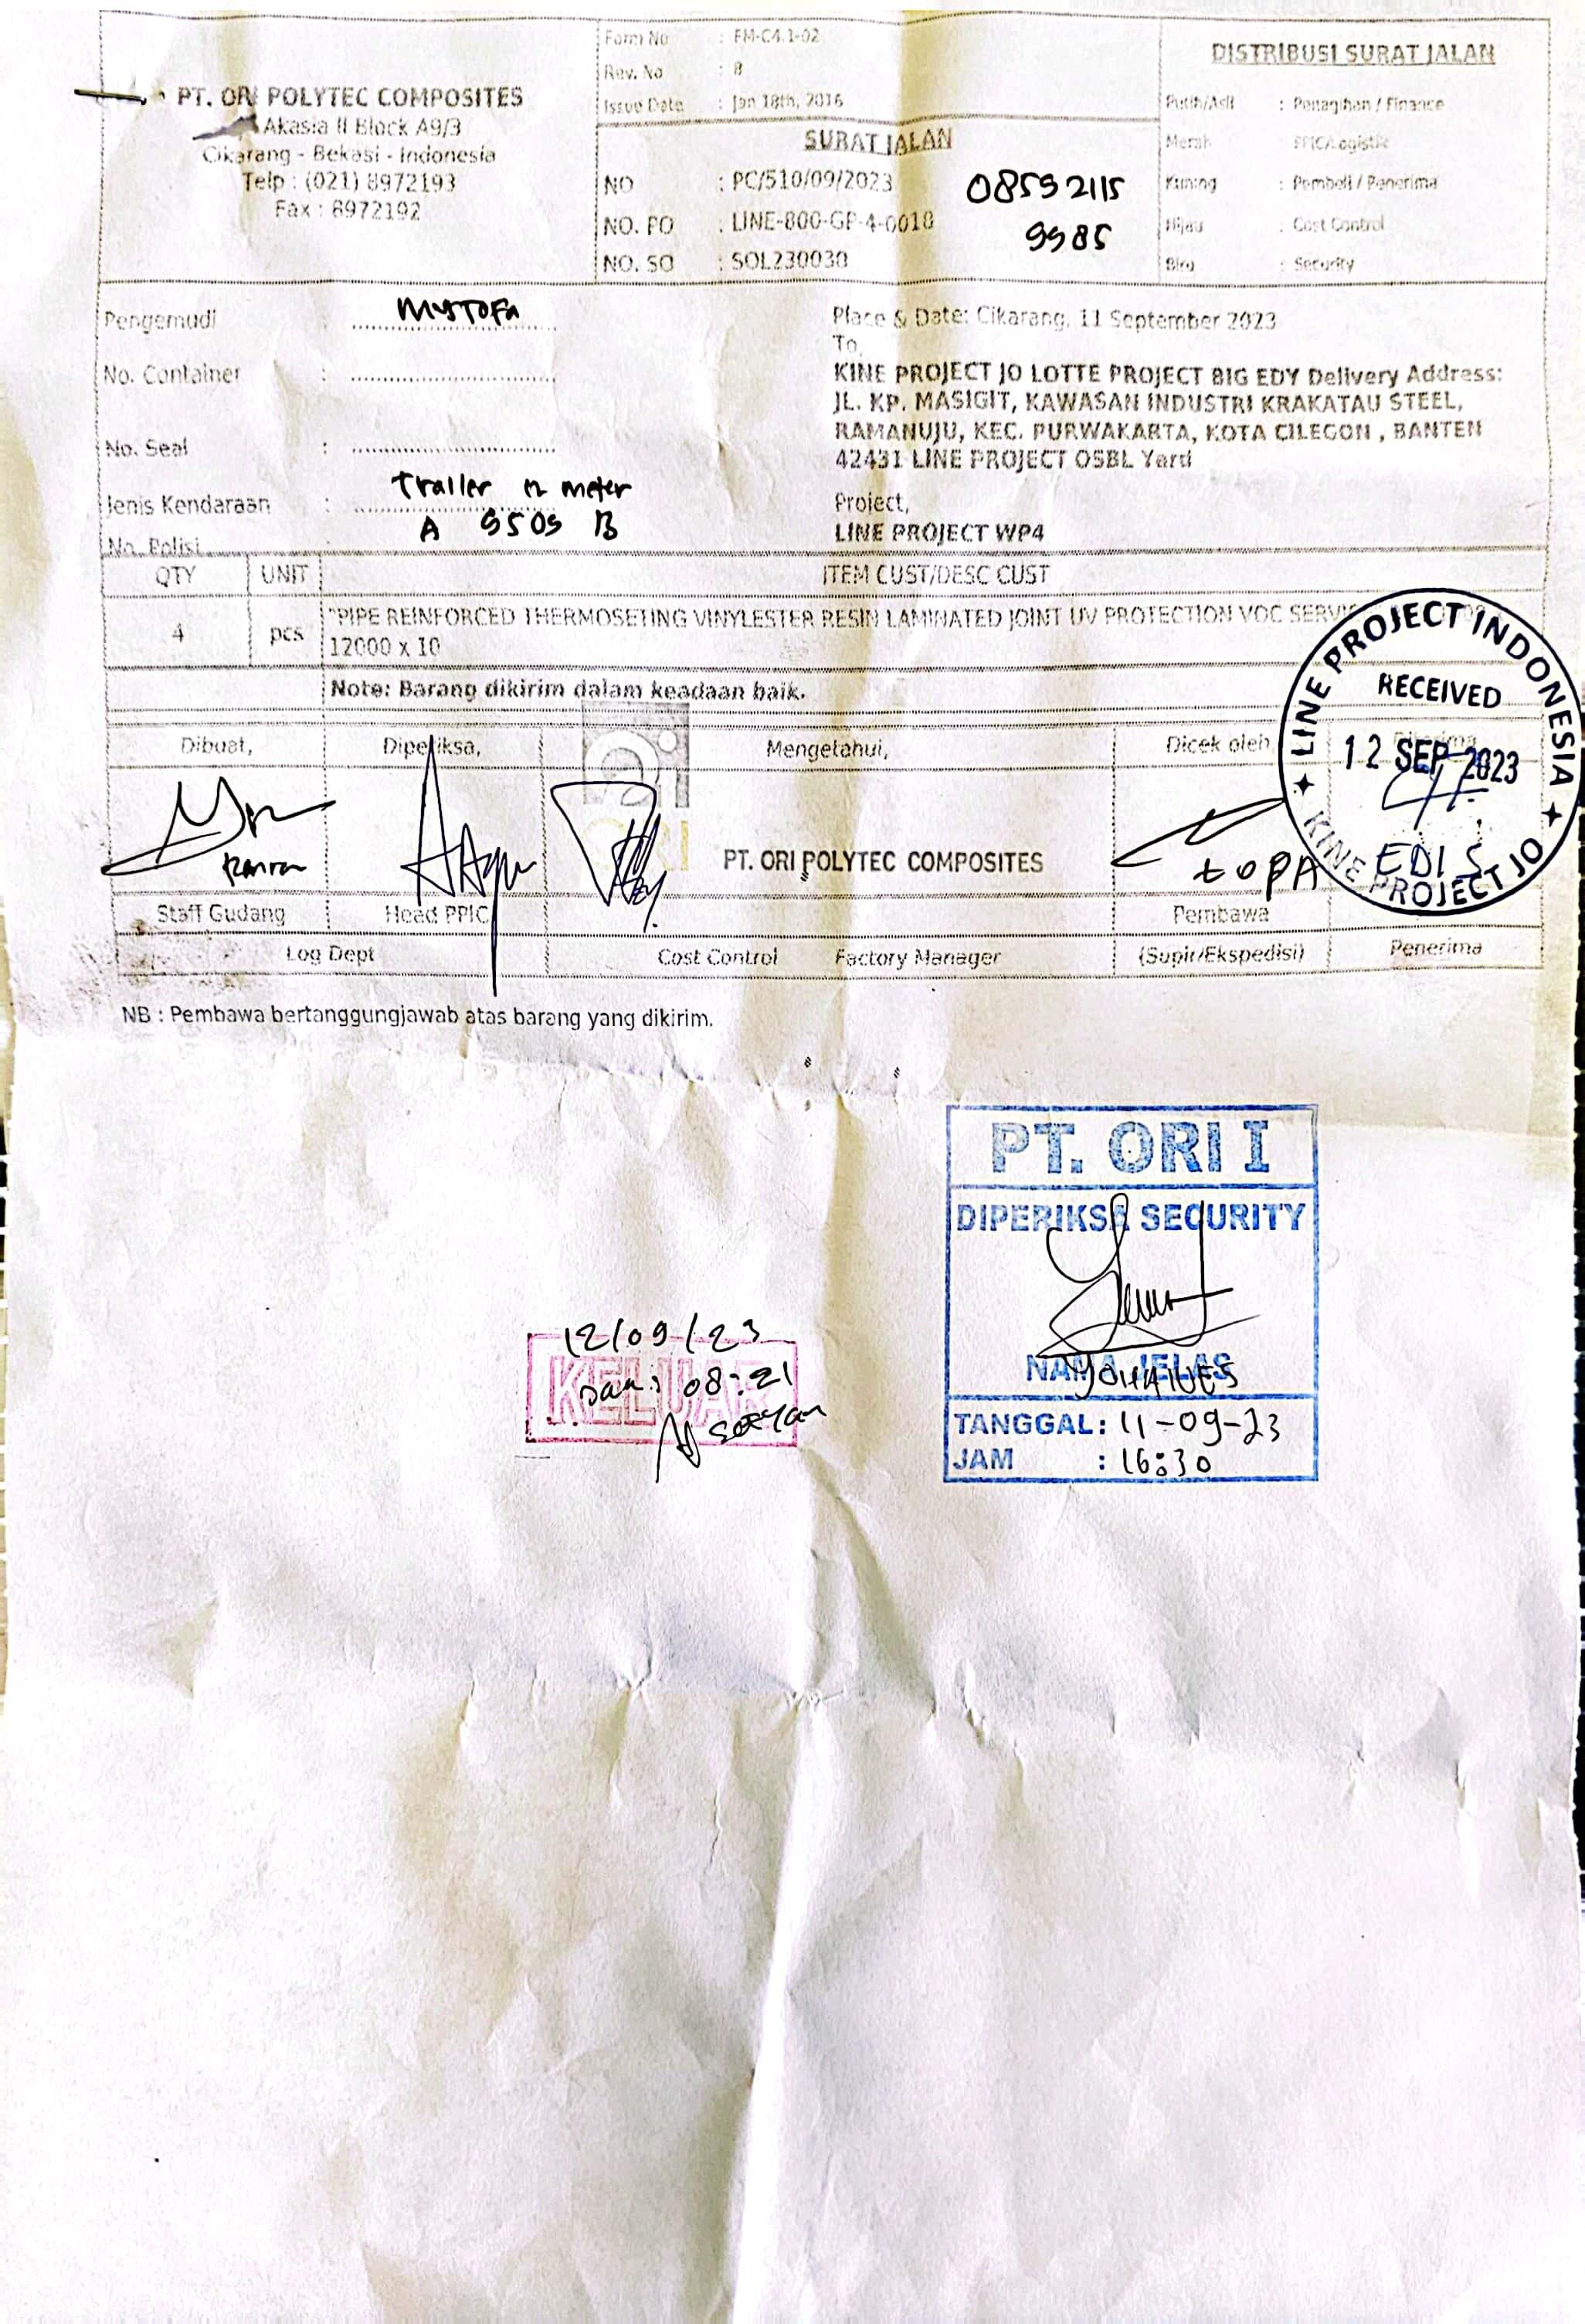 PT. ORI POLYTEC COMPOSITES
Akasia II Block A9/3
Cikarang - Bekasi - Indonesia
Telp : (021) 8972193
Fax : 8972192
Form No : FM-C4.1-02
Rev. No : 8
Issue Date : Jan 18th, 2016
SURAT JALAN
NO : PC/510/09/2023
NO. PO : LINE-800-GP-4-0018
NO. SO : SOL230030
08592115
9985
DISTRIBUSI SURAT JALAN
Putih/Asli : Penagihan / Finance
Merah PPIC/Logistic
Kuning : Pembeli / Penerima
Hijau : Cost Control
Biru : Security
Pengemudi : MUSTOFA
No. Container :
No. Seal :
Jenis Kendaraan : Trailer 12 meter
No. Polisi : A 9509 B
Place & Date: Cikarang, 11 September 2023
To,
KINE PROJECT JO LOTTE PROJECT BIG EDY Delivery Address:
JL. KP. MASIGIT, KAWASAN INDUSTRI KRAKATAU STEEL,
RAMANUJU, KEC. PURWAKARTA, KOTA CILEGON , BANTEN
42431 LINE PROJECT OSBL Yard
Project,
LINE PROJECT WP4
QTY UNIT ITEM CUST/DESC CUST
4 pcs "PIPE REINFORCED THERMOSETING VINYLESTER RESIN LAMINATED JOINT UV PROTECTION VOC
12000 x 10
Note: Barang dikirim dalam keadaan baik.
LINE PROJECT INDONESIA
RECEIVED
12 SEP 2023
EDI S
KINE PROJECT JO
Dibuat, Diperiksa, Mengetahui, Dicek oleh Diterima
PT. ORI POLYTEC COMPOSITES
topA
Staff Gudang Head PPIC Pembawa
Log Dept Cost Control Factory Manager (Supir/Ekspedisi) Penerima
NB : Pembawa bertanggungjawab atas barang yang dikirim.
PT. ORI I
DIPERIKSA SECURITY
NAMA JELAS
YOHANES
TANGGAL : 11-09-23
JAM : 16:30
12/09/23
KELUAR
Jam : 08:21